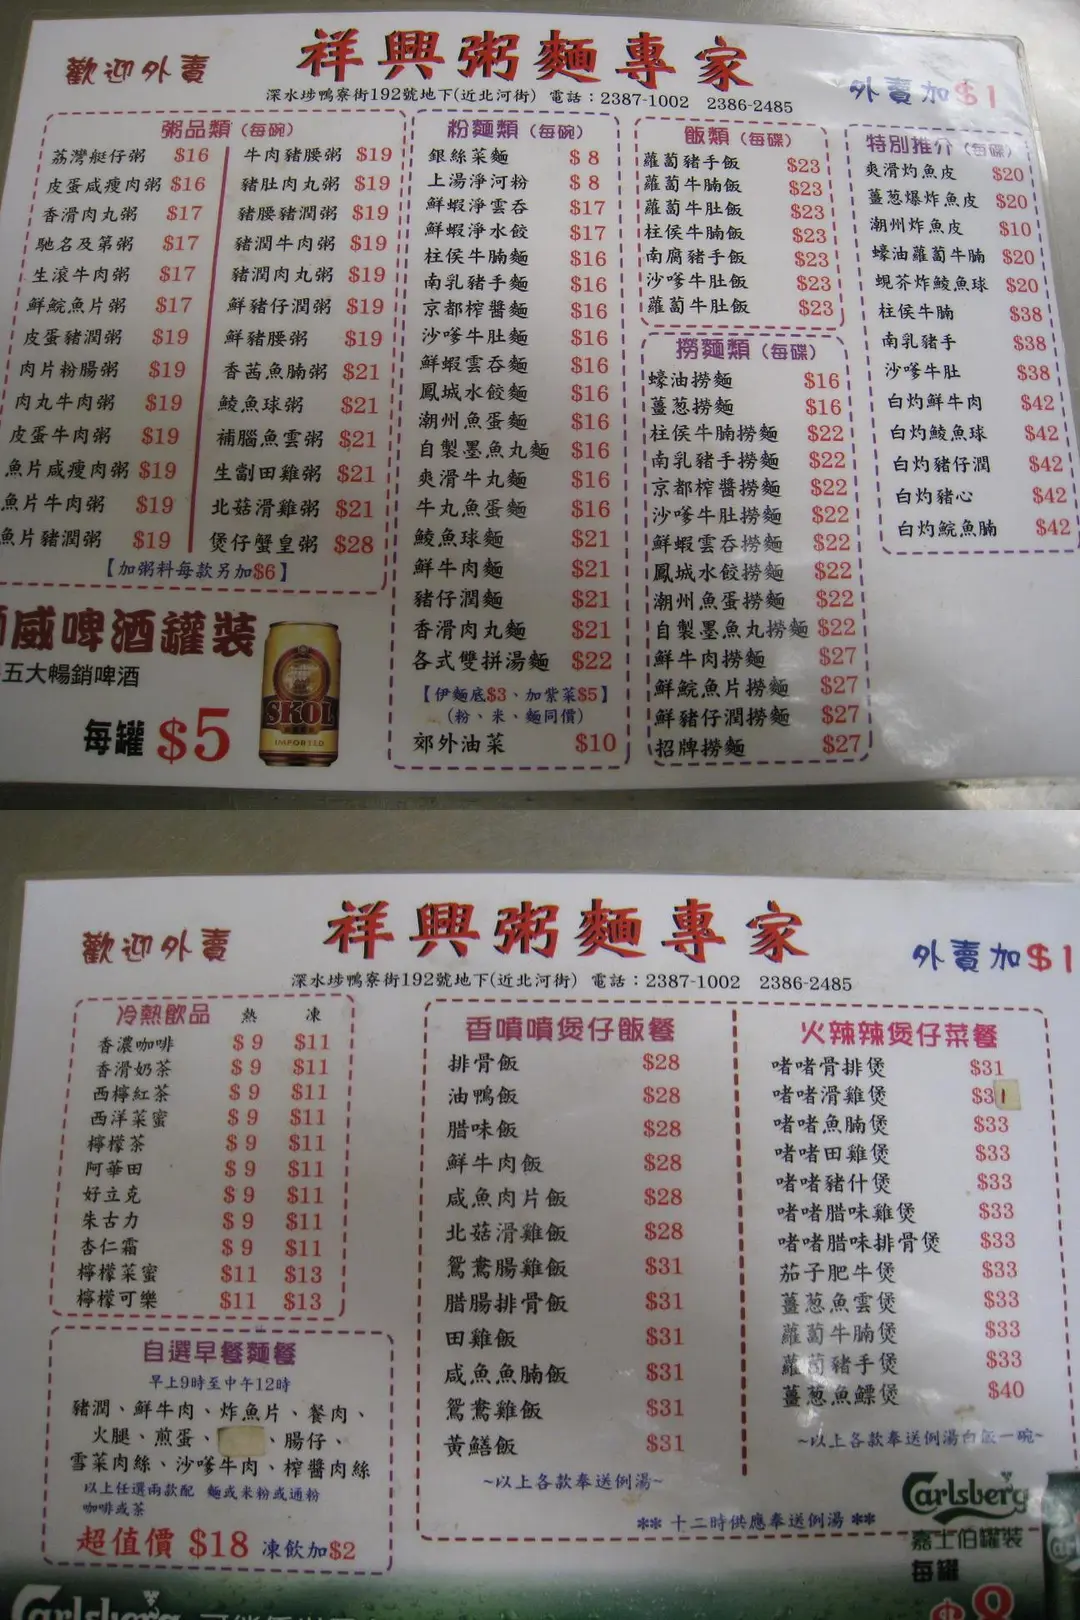 歡迎外賣
祥興粥麵專家
外賣加$1
深水埗鴨寮街192號地下(近北河街) 電話：2387-1002 2386-2485
粥品類（每碗）
荔灣艇仔粥 $16
皮蛋咸瘦肉粥 $16
香滑肉丸粥 $17
馳名及第粥 $17
生滾牛肉粥 $17
鮮鯇魚片粥 $17
皮蛋豬潤粥 $19
肉片粉腸粥 $19
肉丸牛肉粥 $19
皮蛋牛肉粥 $19
魚片咸瘦肉粥 $19
魚片牛肉粥 $19
魚片豬潤粥 $19
牛肉豬腰粥 $19
豬肚肉丸粥 $19
豬腰豬潤粥 $19
豬潤牛肉粥 $19
豬潤肉丸粥 $19
鮮豬仔潤粥 $19
鮮豬腰粥 $19
香茜魚腩粥 $21
鯪魚球粥 $21
補腦魚雲粥 $21
生劏田雞粥 $21
北菇滑雞粥 $21
煲仔蟹皇粥 $28
【加粥料每款另加$6】
威啤酒罐裝
五大暢銷啤酒
每罐 $5
SKOL
IMPORTED
粉麵類（每碗）
銀絲菜麵 $8
上湯淨河粉 $8
鮮蝦淨雲吞 $17
鮮蝦淨水餃 $17
柱侯牛腩麵 $16
南乳豬手麵 $16
京都榨醬麵 $16
沙嗲牛肚麵 $16
鮮蝦雲吞麵 $16
鳳城水餃麵 $16
潮州魚蛋麵 $16
自製墨魚丸麵 $16
爽滑牛丸麵 $16
牛丸魚蛋麵 $16
鯪魚球麵 $21
鮮牛肉麵 $21
豬仔潤麵 $21
香滑肉丸麵 $21
各式雙拼湯麵 $22
【伊麵底$3、加紫菜$5】
（粉、米、麵同價）
郊外油菜 $10
飯類（每碟）
蘿蔔豬手飯 $23
蘿蔔牛腩飯 $23
蘿蔔牛肚飯 $23
柱侯牛腩飯 $23
南腐豬手飯 $23
沙嗲牛肚飯 $23
蘿蔔牛肚飯 $23
撈麵類（每碟）
蠔油撈麵 $16
薑葱撈麵 $16
柱侯牛腩撈麵 $22
南乳豬手撈麵 $22
京都榨醬撈麵 $22
沙嗲牛肚撈麵 $22
鮮蝦雲吞撈麵 $22
鳳城水餃撈麵 $22
潮州魚蛋撈麵 $22
自製墨魚丸撈麵 $22
鮮牛肉撈麵 $27
鮮鯇魚片撈麵 $27
鮮豬仔潤撈麵 $27
招牌撈麵 $27
特別推介（每碟）
爽滑灼魚皮 $20
薑葱爆炸魚皮 $20
潮州炸魚皮 $10
蠔油蘿蔔牛腩 $20
蜆芥炸鯪魚球 $20
柱侯牛腩 $38
南乳豬手 $38
沙嗲牛肚 $38
白灼鮮牛肉 $42
白灼鯪魚球 $42
白灼豬仔潤 $42
白灼豬心 $42
白灼鯇魚腩 $42
歡迎外賣
祥興粥麵專家
外賣加$1
深水埗鴨寮街192號地下(近北河街) 電話：2387-1002 2386-2485
冷熱飲品 熱 凍
香濃咖啡 $9 $11
香滑奶茶 $9 $11
西檸紅茶 $9 $11
西洋菜蜜 $9 $11
檸檬茶 $9 $11
阿華田 $9 $11
好立克 $9 $11
朱古力 $9 $11
杏仁霜 $9 $11
檸檬菜蜜 $11 $13
檸檬可樂 $11 $13
自選早餐麵餐
早上9時至中午12時
豬潤、鮮牛肉、炸魚片、餐肉、
火腿、煎蛋、 、腸仔、
雪菜肉絲、沙嗲牛肉、榨醬肉絲
以上任選兩款配 麵或米粉或通粉
咖啡或茶
超值價 $18 凍飲加$2
香噴噴煲仔飯餐
排骨飯 $28
油鴨飯 $28
腊味飯 $28
鮮牛肉飯 $28
咸魚肉片飯 $28
北菇滑雞飯 $28
鴛鴦腸雞飯 $31
腊腸排骨飯 $31
田雞飯 $31
咸魚魚腩飯 $31
鴛鴦雞飯 $31
黃鱔飯 $31
~以上各款奉送例湯~
火辣辣煲仔菜餐
啫啫骨排煲 $31
啫啫滑雞煲 $31
啫啫魚腩煲 $33
啫啫田雞煲 $33
啫啫豬什煲 $33
啫啫腊味雞煲 $33
啫啫腊味排骨煲 $33
茄子肥牛煲 $33
薑葱魚雲煲 $33
蘿蔔牛腩煲 $33
蘿蔔豬手煲 $33
薑葱魚鰾煲 $40
~以上各款奉送例湯白飯一碗~
** 十二時供應奉送例湯 **
Carlsberg
嘉士伯罐裝
每罐
Carlsberg